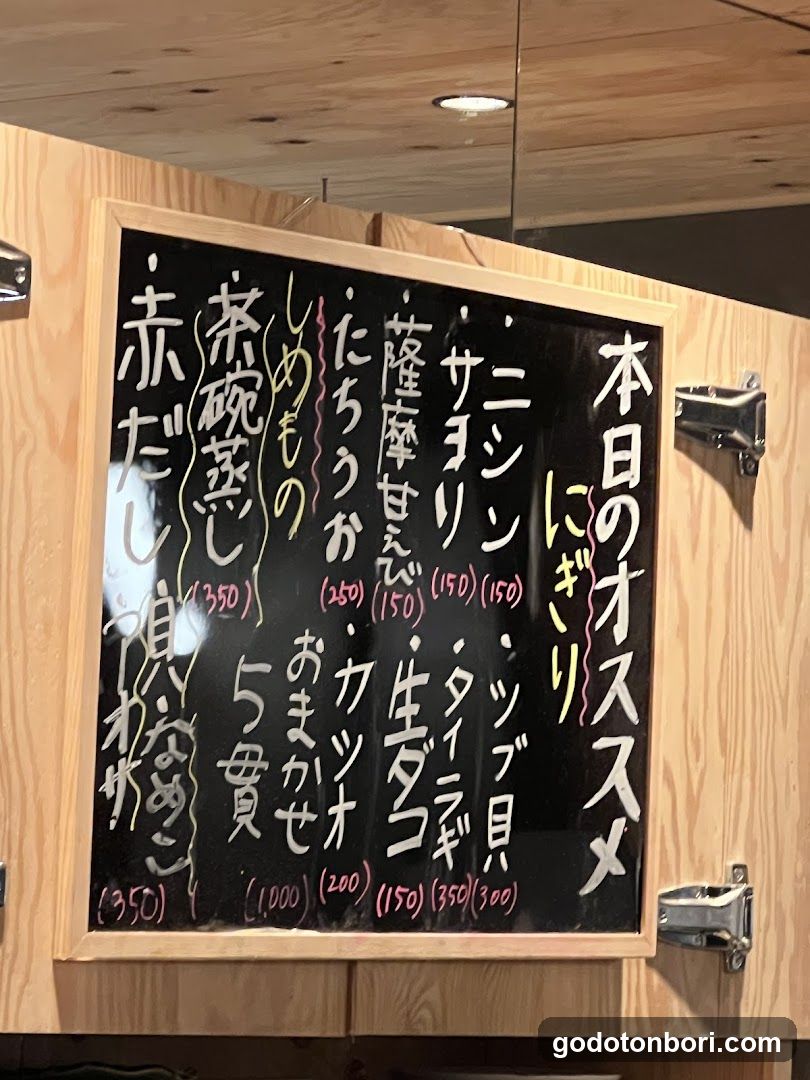 本日のオススメ
にぎり
・ニシン (150)
・ツブ貝 (300)
・サヨリ (150)
・タイラギ (350)
・薩摩甘えび (150)
・生ダコ (150)
・たちうお (250)
・カツオ (200)
しめもの
おまかせ
5貫 (1,000)
茶碗蒸し (350)
・赤だし
・貝・なめこ
・アオサ (350)
godotonbori.com